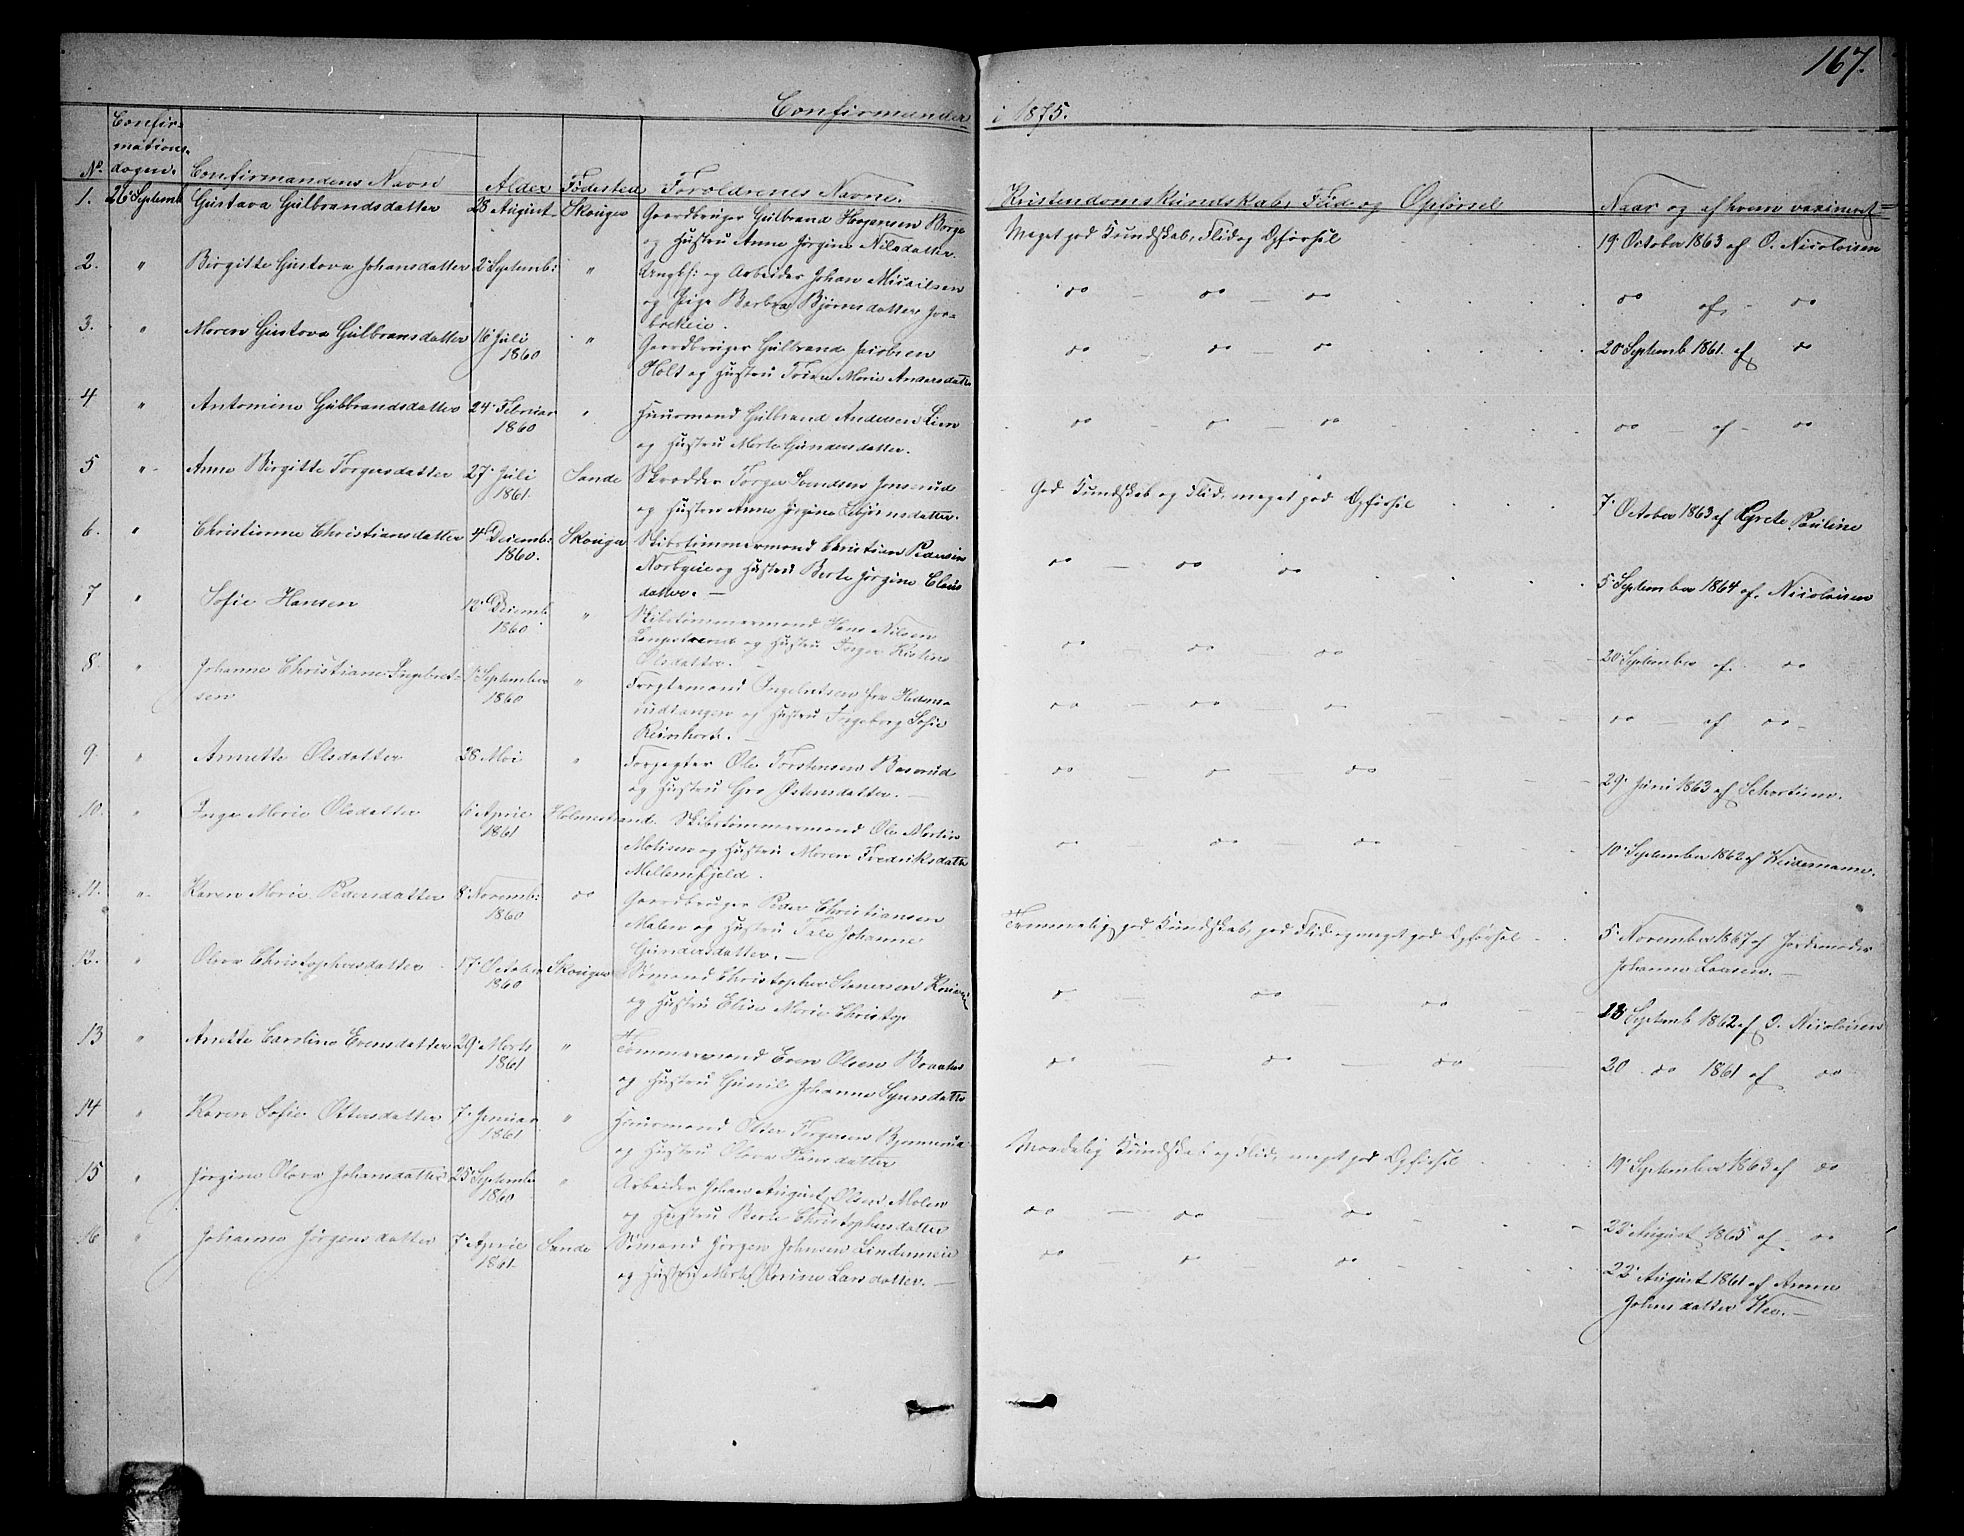 167.
Confirmander i 1875.
No. Confirmationsdagen. Confirmandens Navn Alder Fødested Forældrenes Navne. Kristendomskundskab, Flid og Opførsel Naar og af hvem vaxineret
1. 26 Septemb Gustava Gulbrandsdatter 23 August Skouger Gaardbruger Gulbrand Borge
og Hustru Anne Jørgine Nilsdatter.
Meget god Kundskab, Flid og Opførsel
19. October 1863 af O. Nicolaisen
2. " Birgitte Gustava Johansdatter 2 Septemb: " Ungkf: og Arbeider Johan
og Pige Barbra Bjørnsdatter
do — do — do
do af - do
3. " Maren Gustava Gulbransdatter 16 Juli
1860 " Gaardbruger Gulbrand Jacobsen
Holt og Hustru Marie
do — do — do
20 Septemb 1861. af do
4 " Antomine Gulbrandsdatter 24 Februar
1860 " Huusmand Gulbrand Andersen Lien
og Hustru Marte Gundersdatter.
do — do — do
do — af — do
5 " Anne Birgitte Torgersdatter 27 Juli
1861. Sande Skrædder Torger
og Hustru Anne Jørgine
God Kundskab og Flid, meget god Opførsel
7 October 1863 af Grete Pauline
6. " Christianne Christiansdatter 4 Decemb:
1860. Skouger Skibstimmermand Christian Pedersen
og Hustru Berte Jørgine Claus
datter. —
do — do — do
5 September 1864 af. Nicolaisen
7 " Sofie Hansen 12 Decemb
1860 " Skibstømmermand Hans Nilsen
Langstrand og Hustru Torger Kistine
Olsdatter. —
do — do — do
20 September af. do
8. " Johanne Christiane Ingebret-
sen 1 September
1860 " Fragtemand Ingebretsen fra
og Hustru Ingeborg Sofie
do — do — do
do — af do —
9. " Annette Olsdatter 28 Mai " Forpagter Ole Torstensen
og Hustru Gro Østensdatter. —
do — do — do
29 Juni 1863 af
10. " Inga Marie Olsdatter 6 April
1861 Holmestrand. Skibstømmermand Ole Martin
og Hustru Maren Fredriksdatter
Mellemfjeld.
do — do — do
10 September 1862 af Weidemann.
11. " Karen Marie Pedersdatter 8 Novemb:
1860 do Gaardbruger Peder Christiansen
og Hustru Johanne
Gundersdatter. —
Temmelig god Kundskab, god Flid og meget god Opførsel
5 November 1867 af Jordemoder
Johanne —
12. " Olava Christophersdatter 17 October
1860 Skouger Sømand Christopher
og Hustru Elise Marie Christop
do — do — do
18 Septemb 1862 af O. Nicolaisen
13 " Anette Caroline Evensdatter 29 Marts
1861 " Tømmermand Even Olsen
og Hustru Gunil Johanne
do — do — do
20 do 1861 af do
14 " Karen Sofie Ottersdatter 7 Januar
1861 " Huusmand Otter Torgersen
og Hustru Olava Hansdatter
Maadelig Kundskab og Flid, meget god Opførsel
19 September 1863 af do
15 " Jørgine Olava Johansdatter 25 September
1860 " Arbeider Johan August Olsen
og Hustru Berte Christophersdatter
do — do — do
22 August 1865 af do
16 " Johanne Jørgensdatter 7 April
1861. Sande Sømand Jørgen Johnsen
og Hustru Marte Karine Larsdatter. —
do — do — do
22 August 1861 af Anne
Johnsdatter —